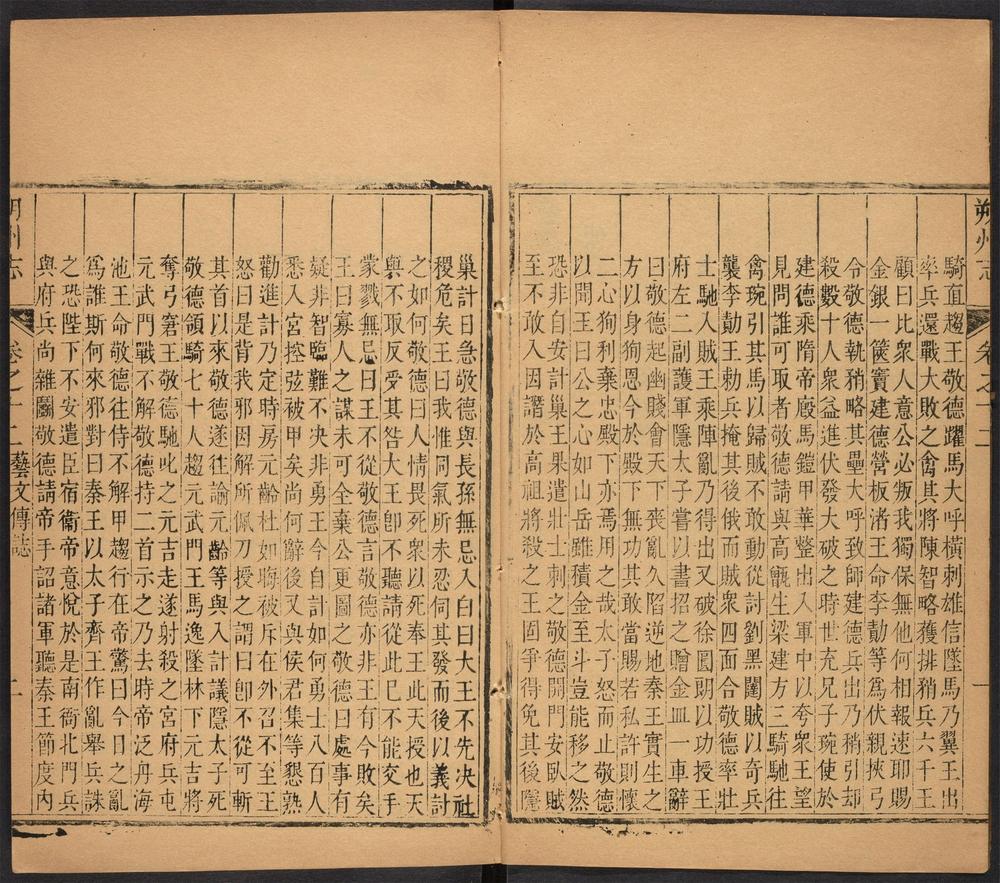 朔州志
卷之十二
一
騎直趨王敬德躍馬大呼橫刺雄信墜馬乃翼王出
率兵還戰大敗之禽其將陳智略獲排矟兵六千王
顧曰比衆人意公必叛我獨保無他何相報速耶賜
金銀一篋竇建德營板渚王命李勣等爲伏親挾弓
令敬德執矟略其壘大呼致師建德兵出乃稍引却
殺數十人衆益進伏發大破之時世充兄子琬使於
建德乘隋帝廄馬鎧甲華整出入軍中以夸衆王望
見問誰可取者敬德請與高甑生梁建方三騎馳往
禽琬引其馬以歸賊不敢動從討劉黑闥賊以奇兵
襲李勣王勅兵掩其後俄而賊衆四面合敬德率壯
士馳入賊王乘陣亂乃得出又破徐圓朗以功授王
府左二副護軍隱太子嘗以書招之贈金皿一車辭
曰敬德起幽賤會天下喪亂久陷逆地秦王實生之
方以身狥恩今於殿下無功其敢當賜若私許則懷
二心狥利棄忠殿下亦焉用之哉太子怒而止敬德
以聞王曰公之心如山岳雖積金至斗豈能移之然
恐非自安計巢王果遣壯士刺之敬德開門安臥賊
至不敢入因譖於高祖將殺之王固爭得免其後隱
巢計日急敬德與長孫無忌入白曰大王不先决社
稷危矣王曰我惟同氣所未忍伺其發而後以義討
之如何敬德曰人情畏死衆以死奉王此天授也天
與不取反受其咎大王卽不聽請從此巳不能交手
蒙戮無忌曰王不從敬德言敬德亦非王有今敗矣
王曰寡人之謀未可全棄公更圖之敬德曰處事有
疑非智臨難不决非勇王今自計如何勇士八百人
悉入宮控弦被甲矣尚何辭後又與侯君集等懇熟
勸進計乃定時房元齡杜如晦被斥在外召不至王
怒曰是背我邪因解所佩刀授之謂曰卽不從可斬
其首以來敬德遂往諭元齡等與入計議隱太子死
敬德領騎七十人趨元武門王馬逸墜林下元吉將
奪弓窘王敬德馳叱之元吉走遂射殺之宮府兵屯
元武門戰不解敬德持二首示之乃去時帝泛舟海
池王命敬德往侍不解甲趨行在帝驚曰今日之亂
爲誰斯何來邪對曰秦王以太子齊王作亂舉兵誅
之恐陛下不安遣臣宿衞帝意悅於是南衙北門兵
與府兵尚雜鬭敬德請帝手詔諸軍聽秦王節度內
朔州志
卷之十二藝文傳誌
二